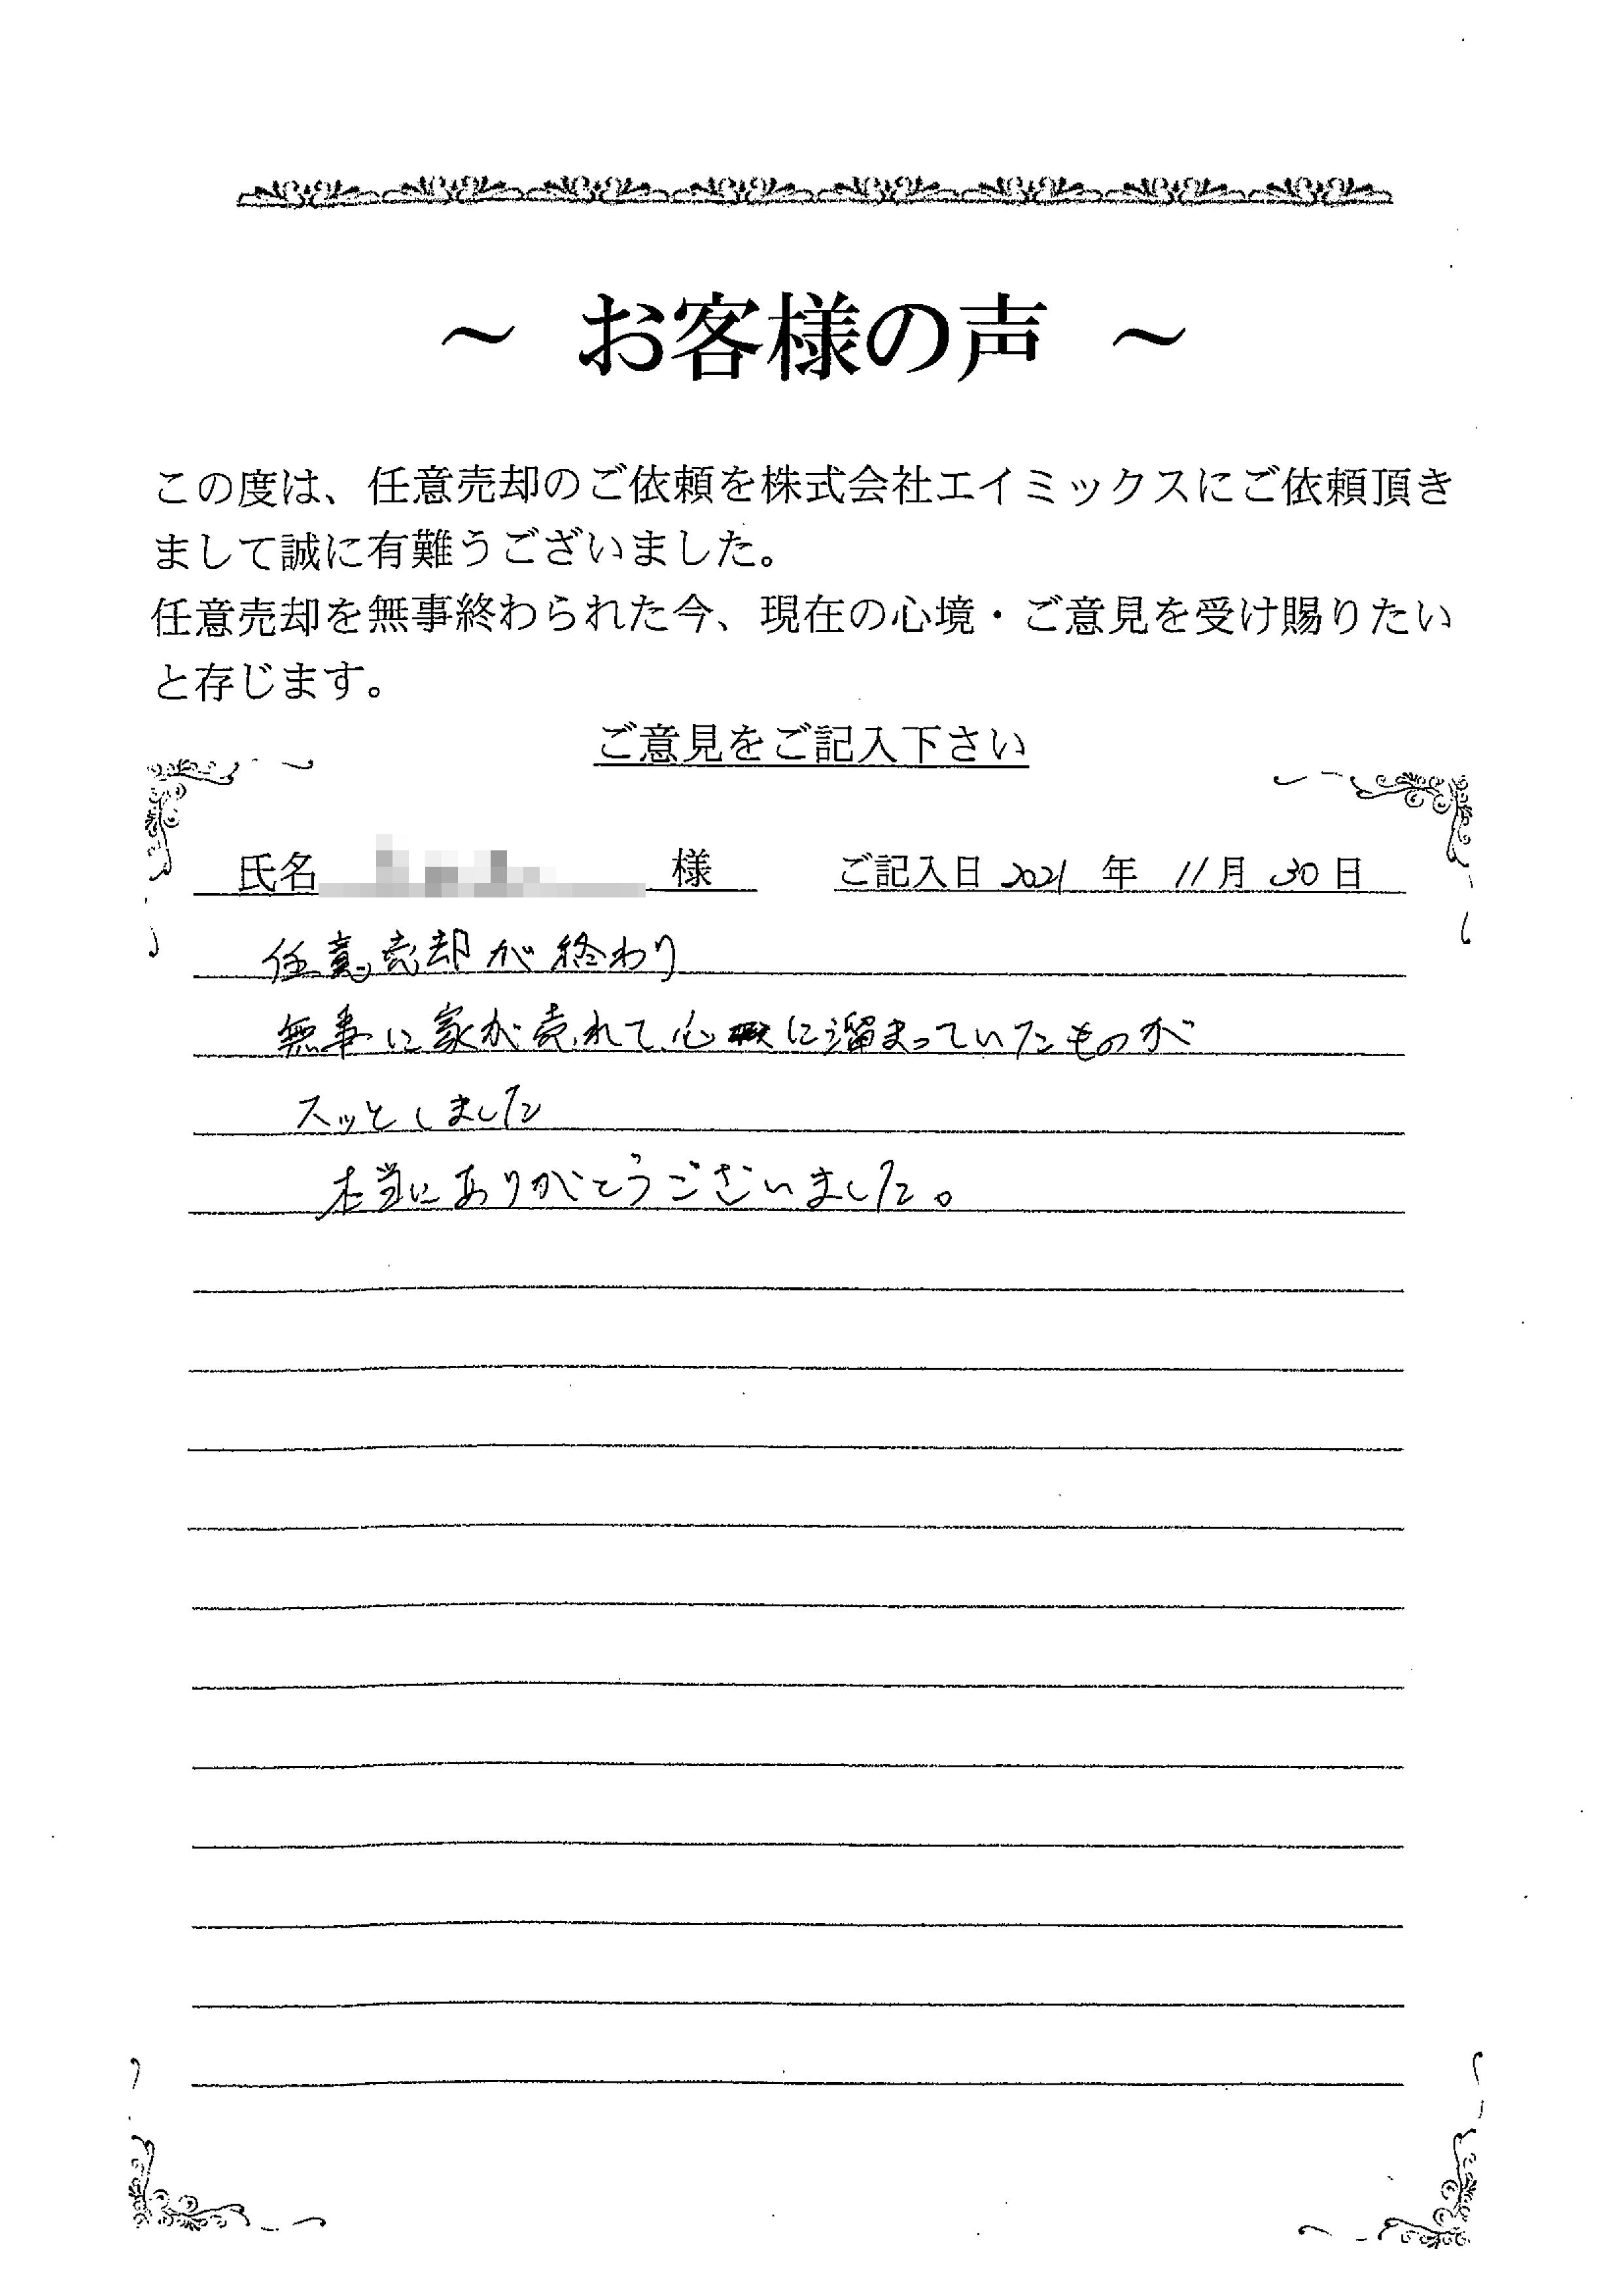 ～ お客様の声 ～
この度は、任意売却のご依頼を株式会社エイミックスにご依頼頂き
まして誠に有難うございました。
任意売却を無事終わられた今、現在の心境・ご意見を受け賜りたい
と存じます。
ご意見をご記入下さい
氏名 様 ご記入日 2021 年 11 月 30 日
任意売却が終わり
無事に家が売れて心に溜まっていたものが
スッとしました
本当にありがとうございました。